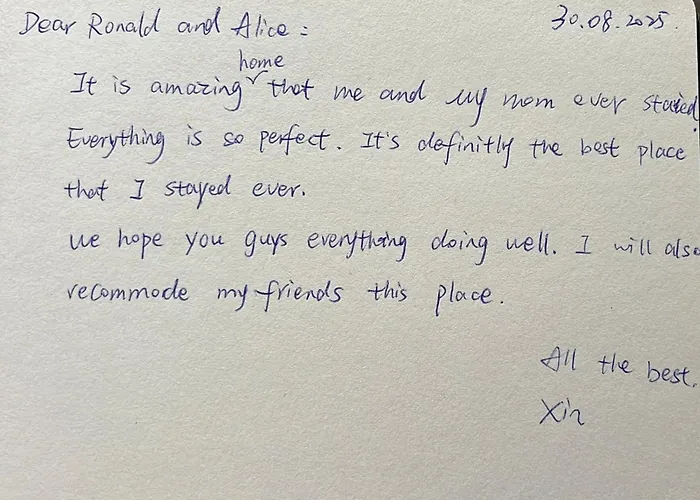 Dear Ronald and Alice :
30.08.2025.
home
It is amazing that me and my mom ever stayed
Everything is so perfect. It's definitly the best place
that I stayed ever.
we hope you guys everything doing well. I will also
recommode my friends this place.
All the best.
Xin